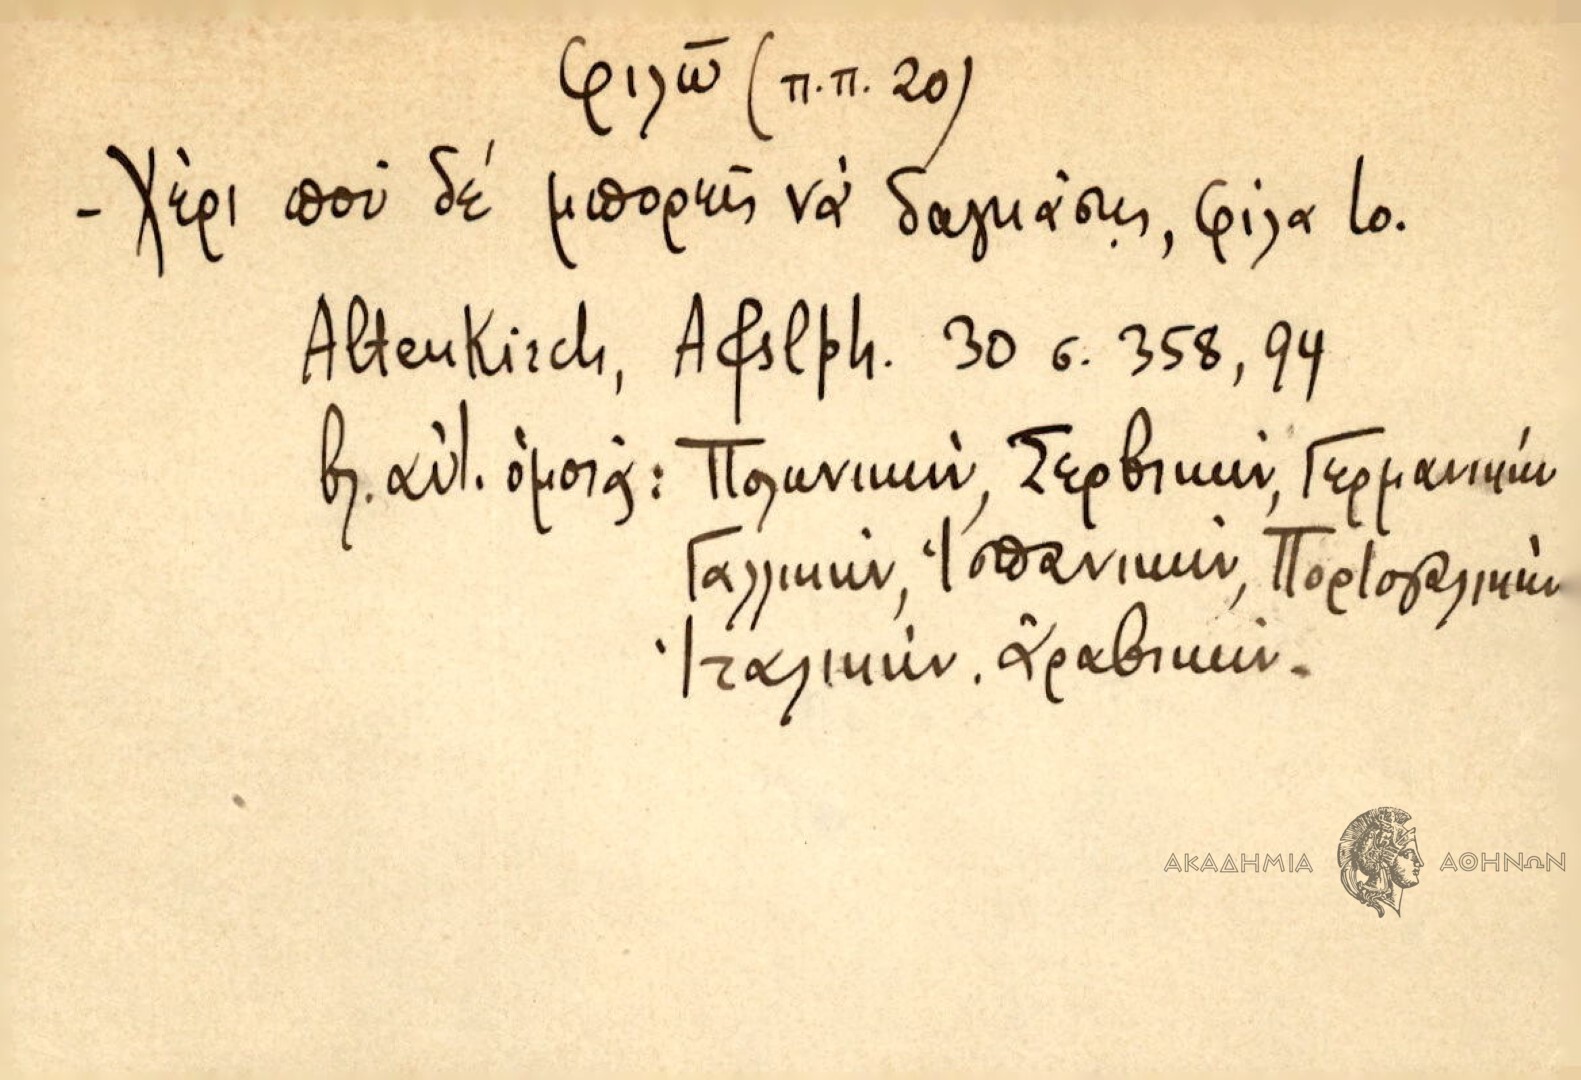 φιλῶ (π.π. 20)
- Χέρι ποὺ δέ μπορεῖς νὰ δαγκάσῃς, φίλα το.
Altenkirch, Afslph. 30 σ. 358, 94
βλ. αὐτ. ὅμοιά: Πολωνικήν, Σερβικήν, Γερμανικήν
Γαλλικήν, Ἱσπανικήν, Πορτογαλικήν
Ἰταλικήν. Ἀραβικήν.
ΑΚΑΔΗΜΙΑ ΑΘΗΝΩΝ